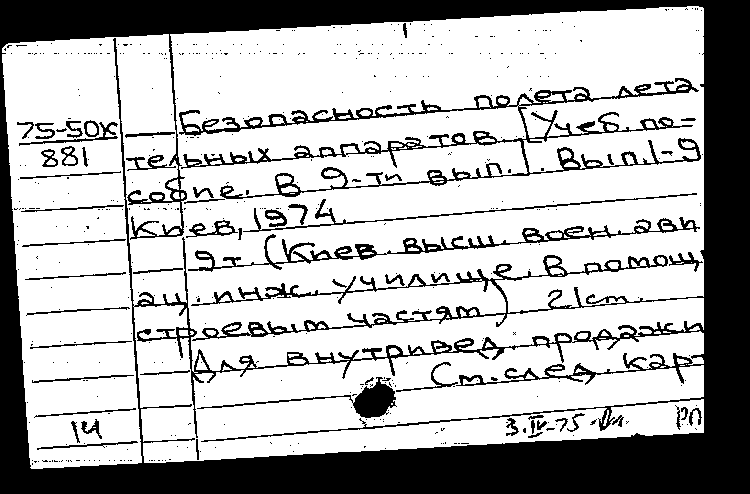 75-50к
881
Безопасность полета лета-
тельных аппаратов [Учеб. по-
собие. В 9-ти вып.]. Вып. 1-9
Киев, 1974.
9 т. (Киев. высш. воен. ави
ац. инж. училище. В помощь
строевым частям). 21 cm.
Для внутривед. продажи
См. след. карт
14
3.IV-75
РП